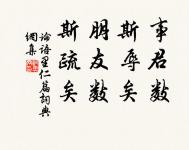 事君數
斯辱矣
朋友數
斯疏矣
論語里仁篇詞典
網集